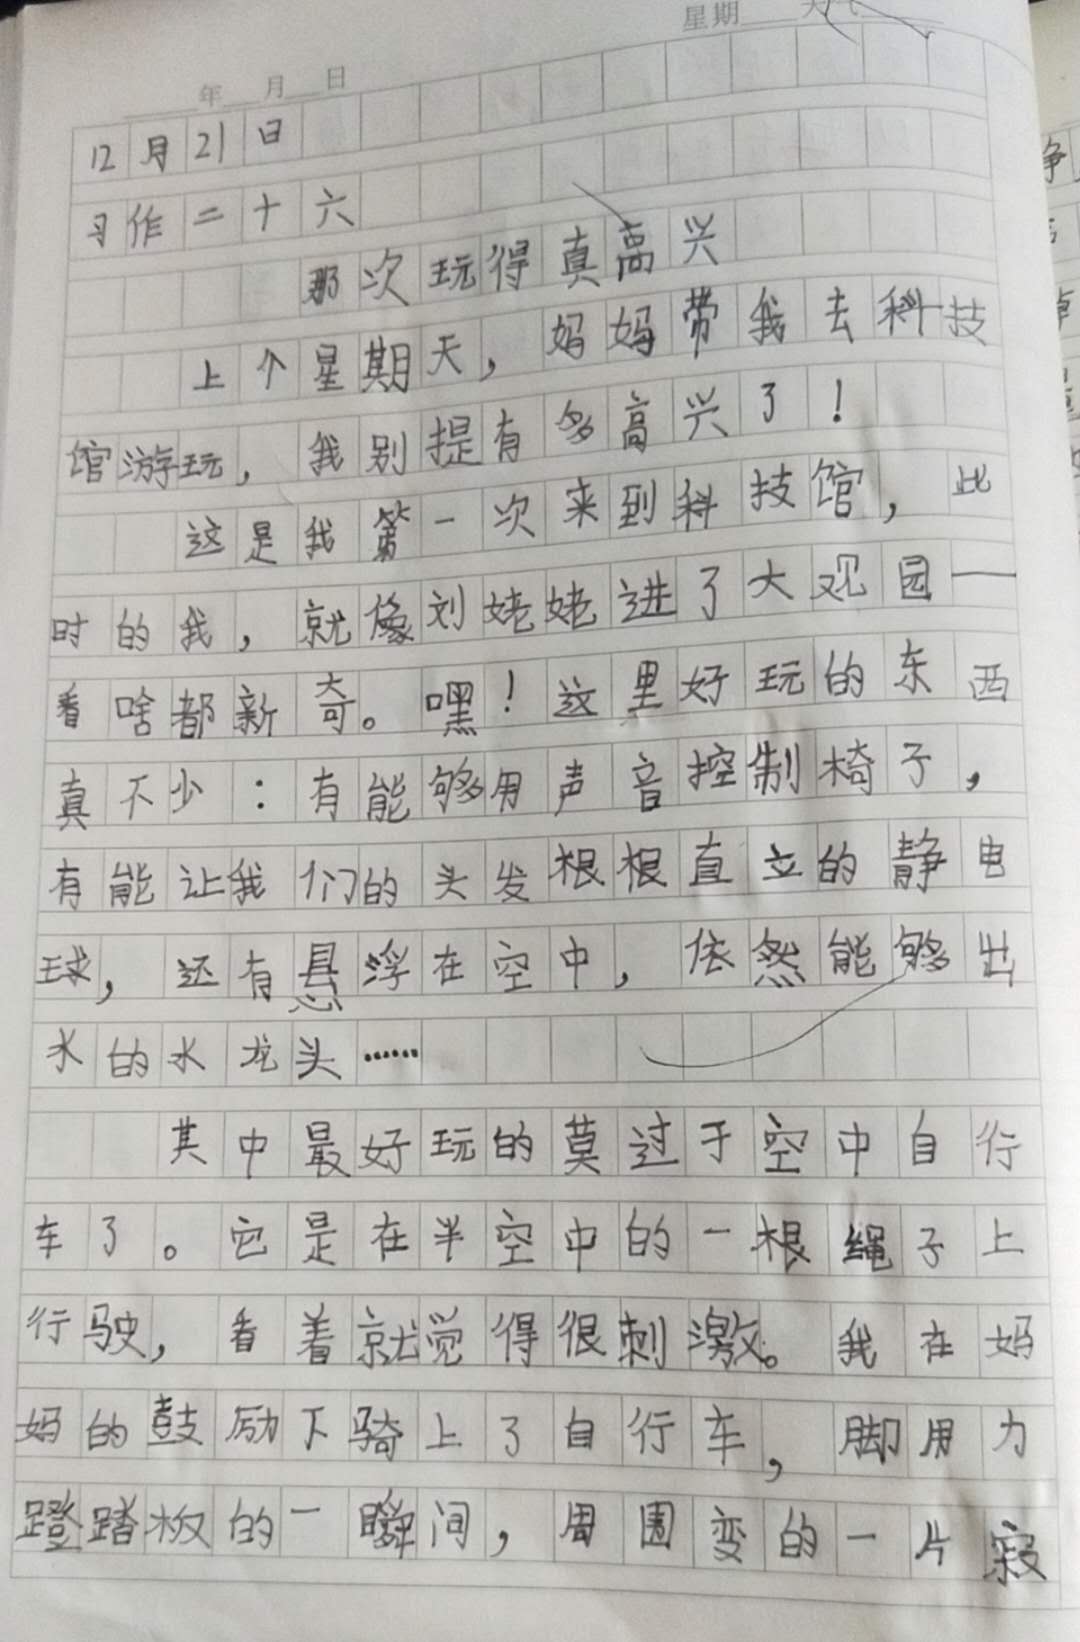 星期 天气
年 月 日
12月21日
习作二十六
那次玩得真高兴
上个星期天，妈妈带我去科技
馆游玩，我别提有多高兴了！
这是我第一次来到科技馆，此
时的我，就像刘姥姥进了大观园——
看啥都新奇。嘿！这里好玩的东西
真不少：有能够用声音控制椅子，
有能让我们的头发根根直立的静电
球，还有悬浮在空中，依然能够出
水的水龙头……
其中最好玩的莫过于空中自行
车了。它是在半空中的一根绳子上
行驶，看着就觉得很刺激。我在妈
妈的鼓励下骑上了自行车，脚用力
蹬踏板的一瞬间，周围变的一片寂